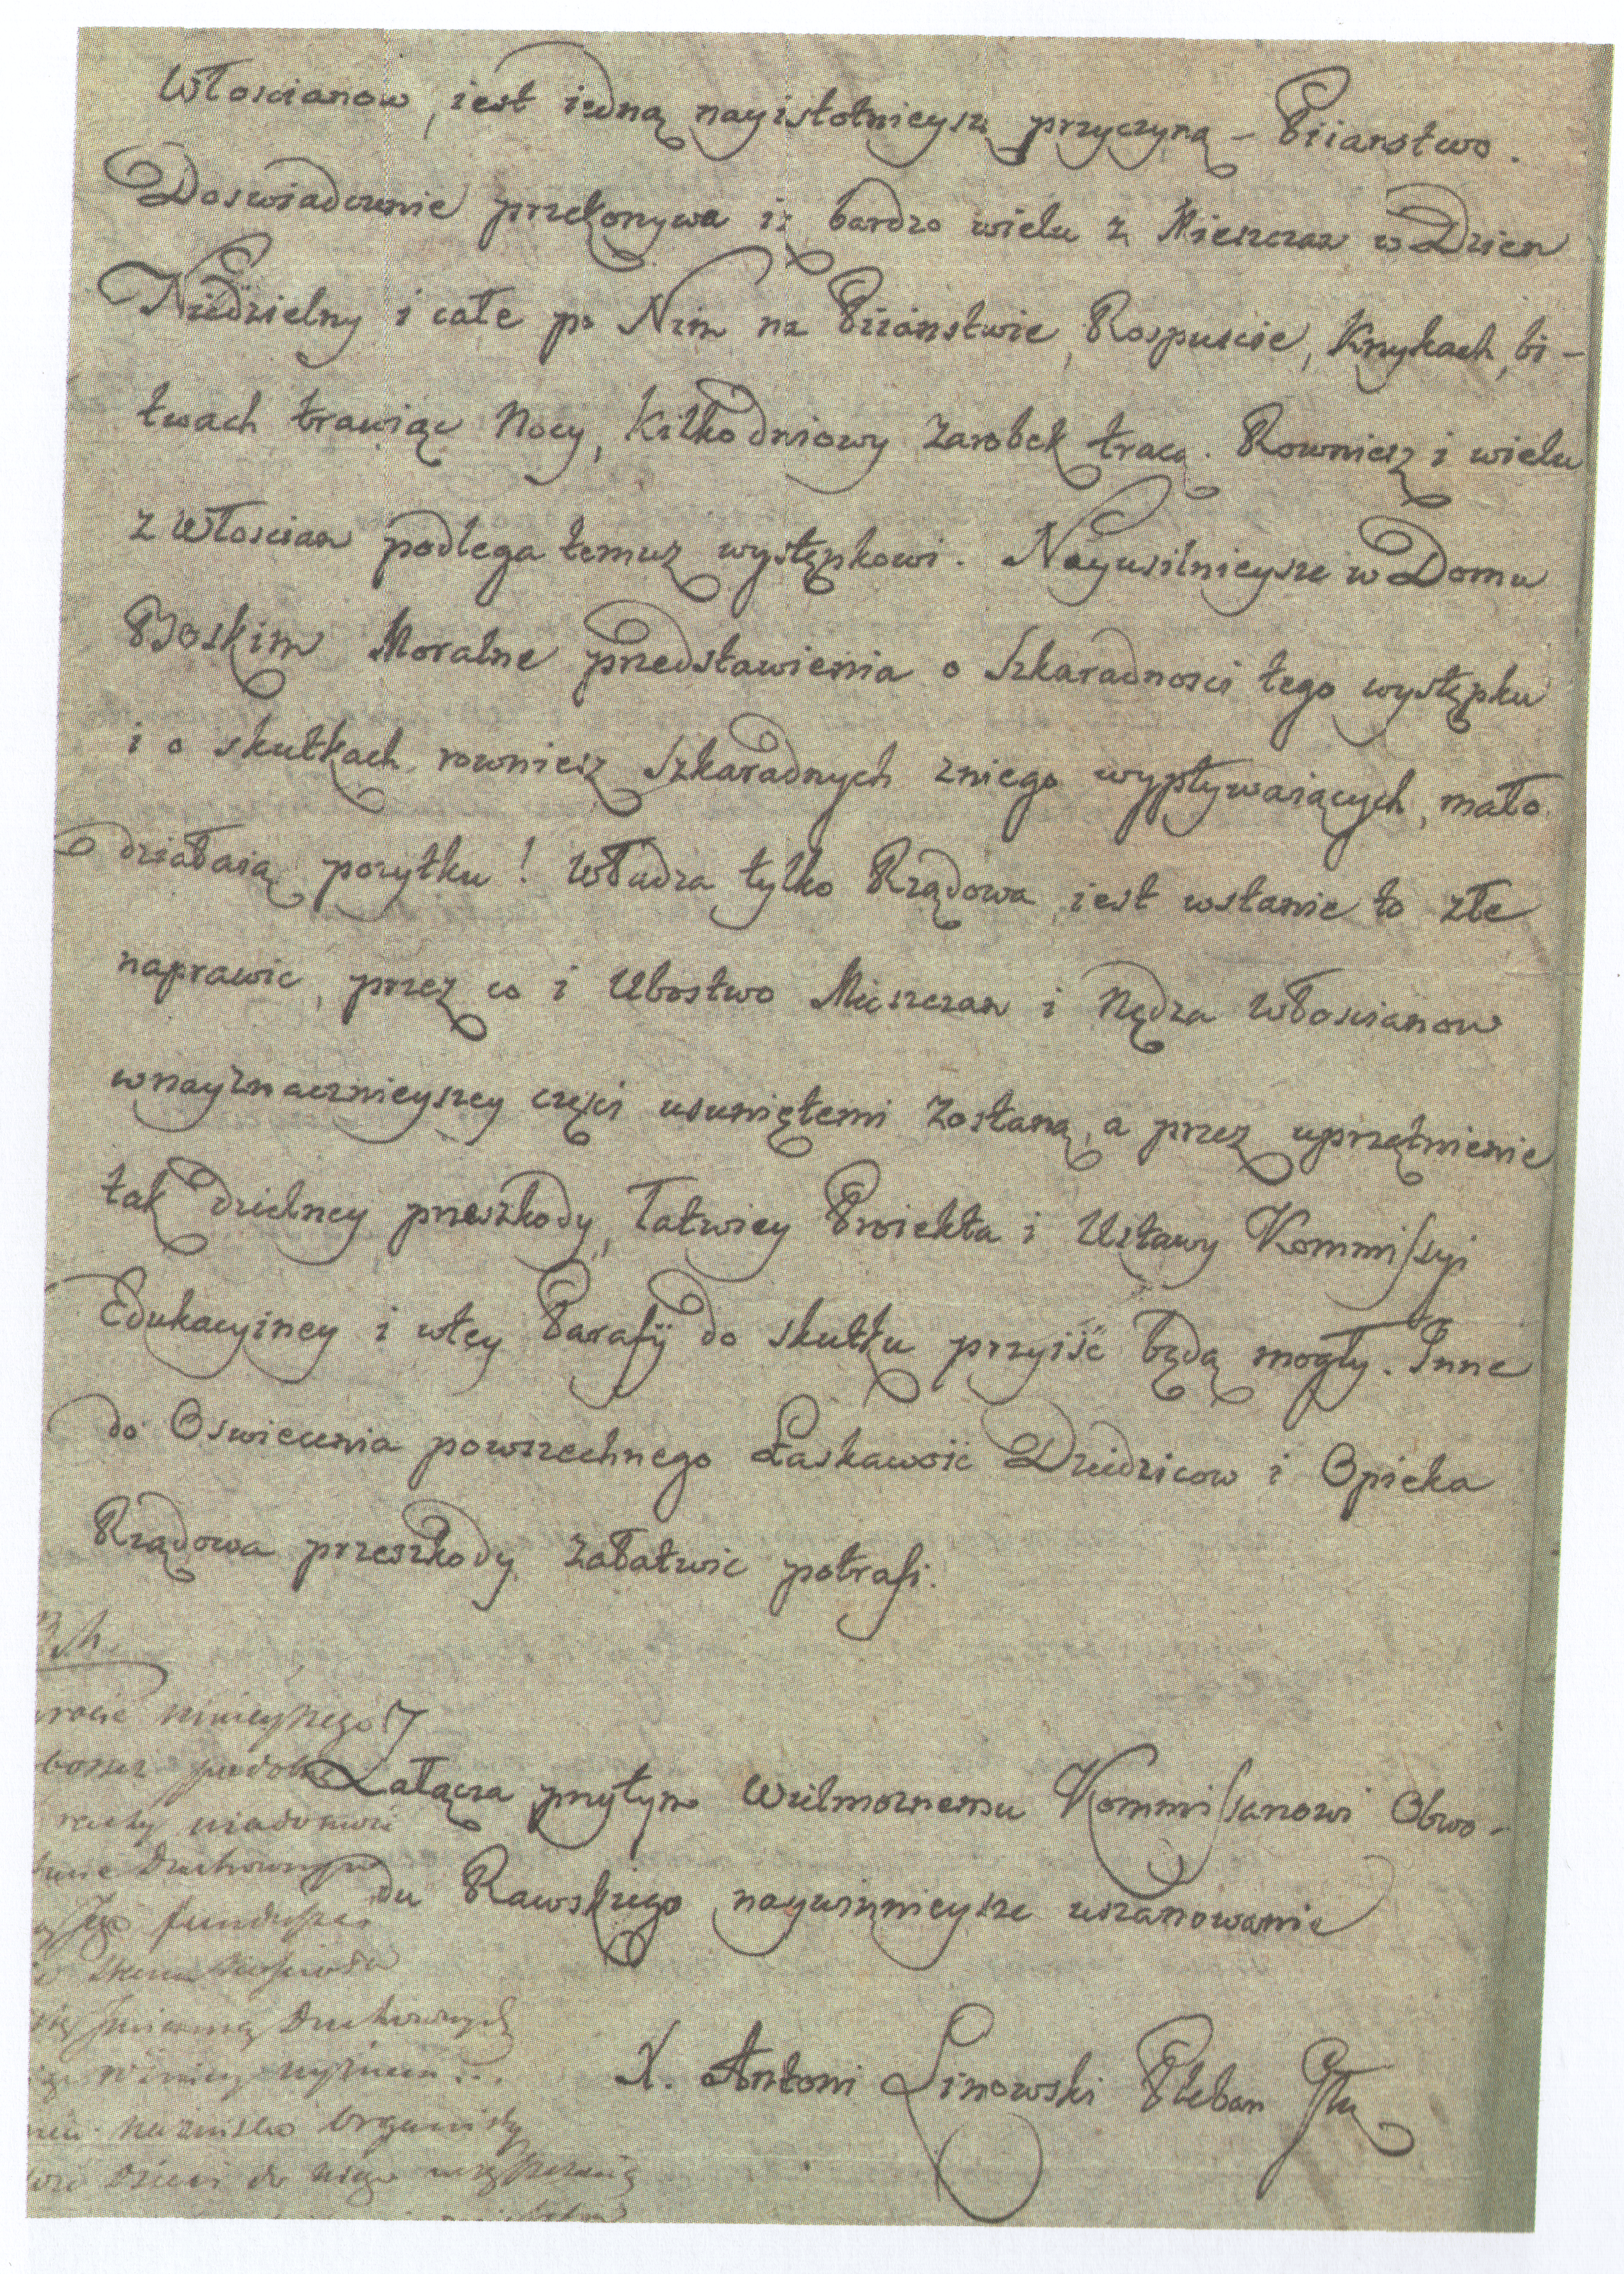 Włoscianow, iest iedną nayistotnieyszą przyczyną – Piianstwo.
Doswiadczenie przekonywa iż bardzo wielu z Mieszczan w Dzien
Niedzielny i całe po Nim na Piianstwie, Rospuscie, Krzykach, bi-
twach trawiąc Nocy, Kilkodniowy Zarobek tracą. Rowniesz i wielu
z Włoscian podlega temuż występkowi. Nayusilnieysze w Domu
Boskim Moralne przedstawienia o Szkaradnosci tego występku
i o skutkach rowniesz Szkaradnych zniego wypływaiących, mało
działaią pozytku! Władza tylko Rządowa iest wstanie to złe
naprawic, przez co i Ubostwo Mieszczan i Nędza Włoscianow
wnayznacznieyszey częsci usuniętemi Zostaną, a przez uprzątnienie
tak dzielney przeszkody, Łatwiey Proiekta i Ustawy Kommissyi
Edukacyiney i wtey Parafij do skutku przyiść będą mogły. Inne
do Oswiecenia powszechnego Łaskawość Dziedzicow i Opieka
Rządowa przeszkody załatwic potrafi.
Załącza przytym Wielmożnemu Kommissarzowi Obwo-
du Rawskiego naywinnieysze uszanowanie
X. Antoni Linowski Pleban
funduszu
Duchownych
nazwisko Organisty